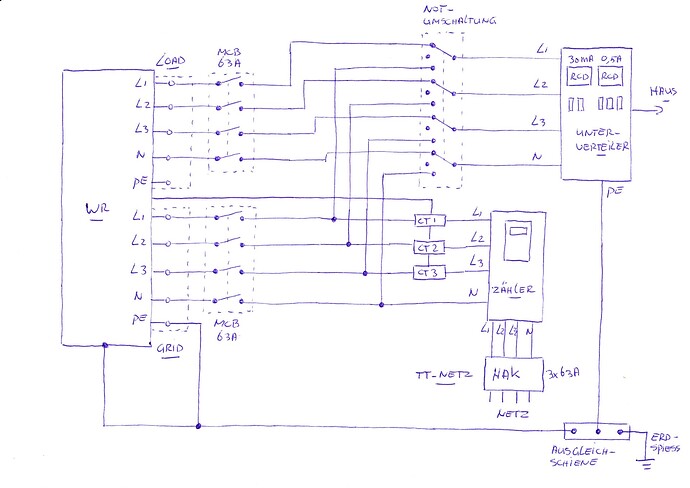 NOT-
UMSCHALTUNG
LOAD
MCB
63A
L1
30mA 0,5A
RCD RCD
L1
L2
L2
HAUS
L3
L3
UNTER-
VERTEILER
N
N
PE
PE
WR
L1
CT1
L1
L2
CT2
L2
L3
CT3
L3
N
N
ZÄHLER
PE
MCB
63A
GRID
L1 L2 L3 N
TT-NETZ
HAK
3x63A
NETZ
AUSGLEICH-
SCHIENE
ERD-
SPIESS